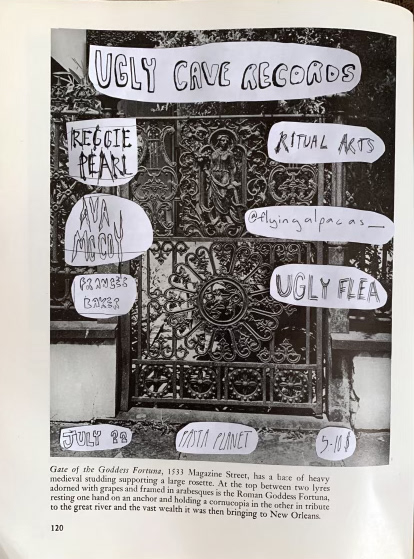 UGLY CAVE RECORDS
REGGIE
PEARL
RITUAL ACTS
AVA
MCCOY
@flyingalpacas_
FRANCES
BAKER
UGLY FLEA
JULY
PASTA PLANET
5-10$
Gate of the Goddess Fortuna, 1533 Magazine Street, has a base of heavy
medieval studding supporting a large rosette. At the top between two lyres
adorned with grapes and framed in arabesques is the Roman Goddess Fortuna,
resting one hand on an anchor and holding a cornucopia in the other in tribute
to the great river and the vast wealth it was then bringing to New Orleans.
120